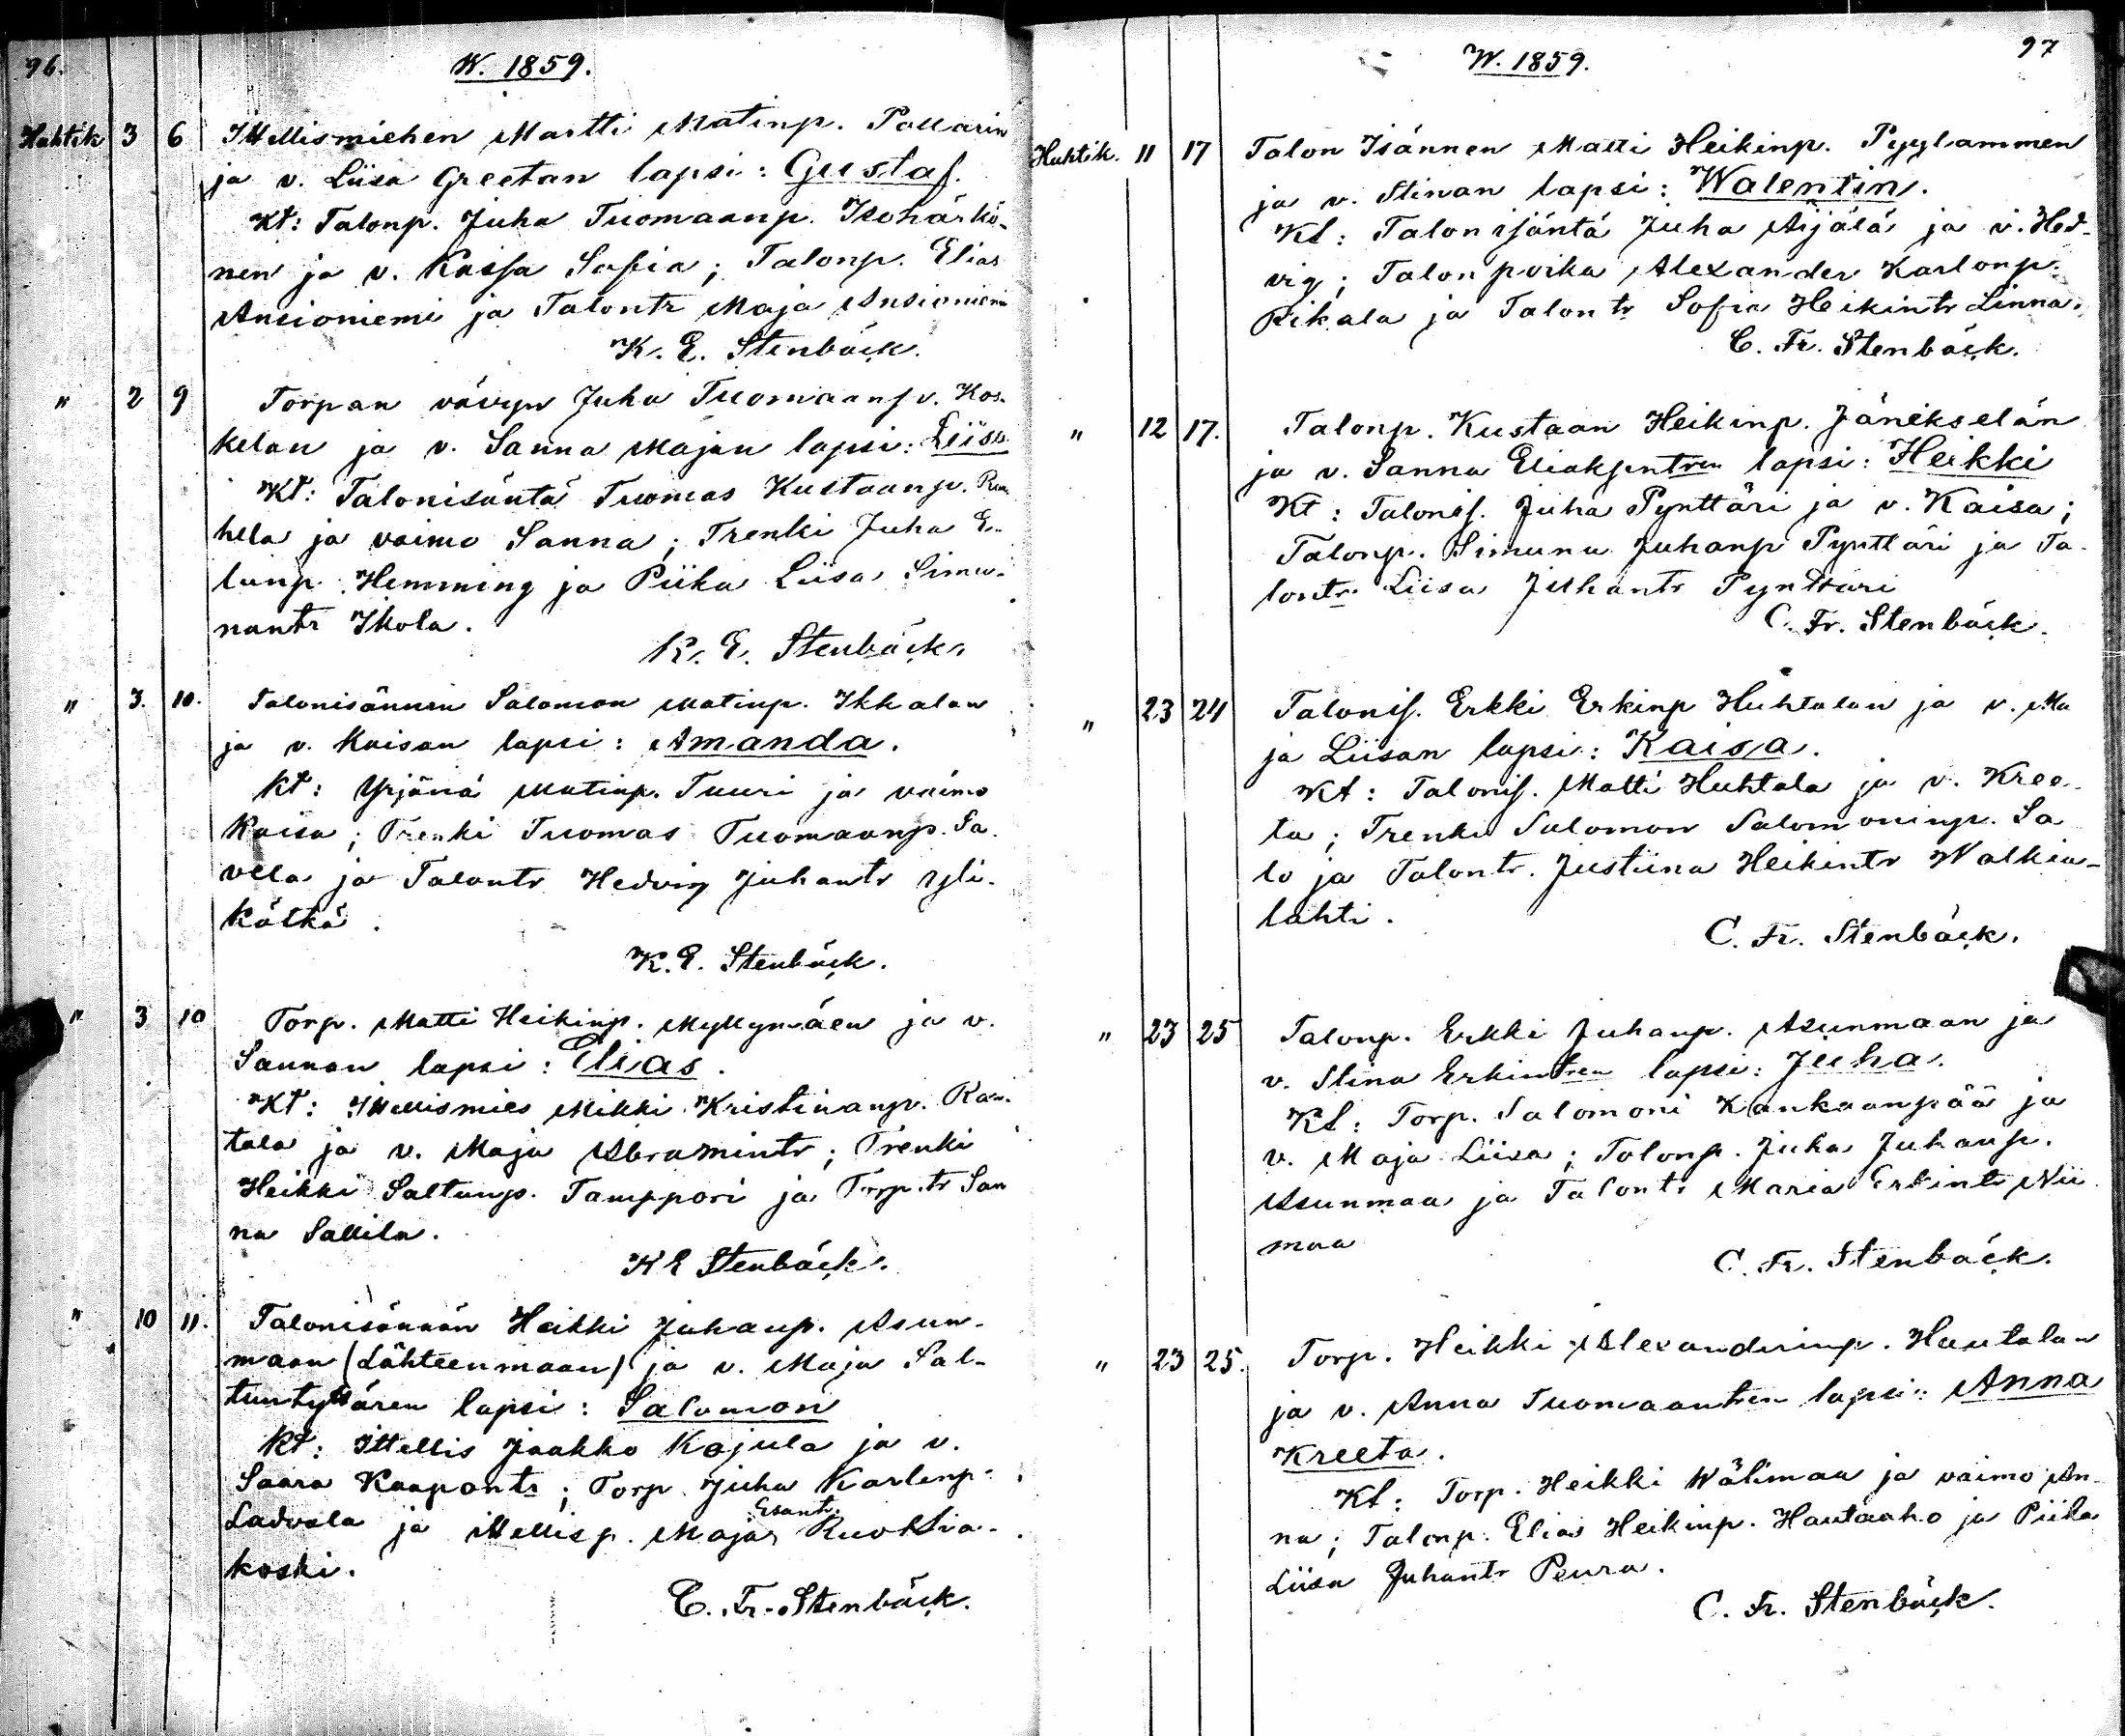 96.
W. 1859.
Huhtik 3 6 Itellismiehen Martti Matinp. Pollarin
ja v. Liisa Greetan lapsi: Gustaf.
Kt: Talonp. Juha Tuomaanp. Isohärkö-
nen ja v. Kaisa Sofia; Talonp. Elias
Ansioniemi ja Talontr Maja Ansioniemi
K. E. Stenbäck.
" 2 9 Torpan vävyn Juha Tuomaanp. Kos-
kelan ja v. Sanna Majan lapsi: Liisa
Kt: Talonisäntä Tuomas Kustaanp.
hela ja vaimo Sanna; Trenki Juha E-
lianp. Hemming ja Piika Liisa Simu-
nantr Ikola.
K. E. Stenbäck.
" 3. 10. Talonisännän Salomon Matinp. Ikkalan
ja v. Kaisan lapsi: Amanda.
Kt: Yrjänä Matinp. Tuuri ja vaimo
Kaisa; Trenki Tuomas Tuomaanp. Sa-
vela ja Talontr Hedvig Juhantr Yli-
kätkä.
K. E. Stenbäck.
" 3 10 Torp. Matti Heikinp. Myllymäen ja v.
Sannan lapsi: Elias.
Kt: Itellismies Mikki Kristianp. Rau-
tala ja v. Maja Abramintr; Trenki
Heikki Saltunp. Tamppori ja Torp.tr San
na Sallila.
K E Stenbäck.
" 10 11. Talonisännän Heikki Juhanp. Asun-
maan (Lähteenmaan) ja v. Maja Sal-
tuntyttären lapsi: Salomon
Kt: Ittellis Jaakko Kojula ja v.
Saara Kaapontr; Torp Juha Karlenp.
Esantr
Ladvala ja ittellisp. Maja Ruoktia-
koski.
C. Fr. Stenbäck.
97
W. 1859.
Huhtik. 11 17 Talon Isännen Matti Heikinp. Pyylammen
ja v. Stinan lapsi: Walentin.
Kt: Talon isäntä Juha Äijälä ja v. Hed-
vig; Talon poika Alexander Karlonp.
Rikala ja Talontr Sofia Heikintr Linna.
C. Fr. Stenbäck.
" 12 17. Talonp. Kustaan Heikinp. Jänekselän
ja v. Sanna Eliaksentren lapsi: Heikki
Kt: Talonis. Juha Pynttäri ja v. Kaisa;
Talonp. Simuna Juhanp Pynttäri ja Ta-
lontr. Liisa Juhantr Pynttäri
C. Fr. Stenbäck.
" 23 24 Talonis. Erkki Erkinp Huhtalan ja v. Ma
ja Liisan lapsi: Kaisa.
Kt: Talonis. Matti Huhtala ja v. Kree-
ta; Trenki Salomon Salomoninp. Sa
lo ja Talontr. Justiina Heikintr Walkia-
lahti.
C. Fr. Stenbäck.
" 23 25 Talonp. Erkki Juhanp. Asunmaan ja
v. Stina Erkintren lapsi: Juha.
Kt: Torp. Salomoni Kankaanpää ja
v. Maja Liisa; Talonp. Juha Juhanp.
Asunmaa ja Talontr Maria Erkintr Nii
maa
C. Fr. Stenbäck.
" 23 25. Torp. Heikki Alexanderinp. Hautalan
ja v. Anna Tuomaantren lapsi: Anna
Kreeta.
Kt: Torp. Heikki Wälimaa ja vaimo An-
na; Talonp. Elias Heikinp. Hautaaho ja Piika
Liisa Juhantr Peura.
C. Fr. Stenbäck.